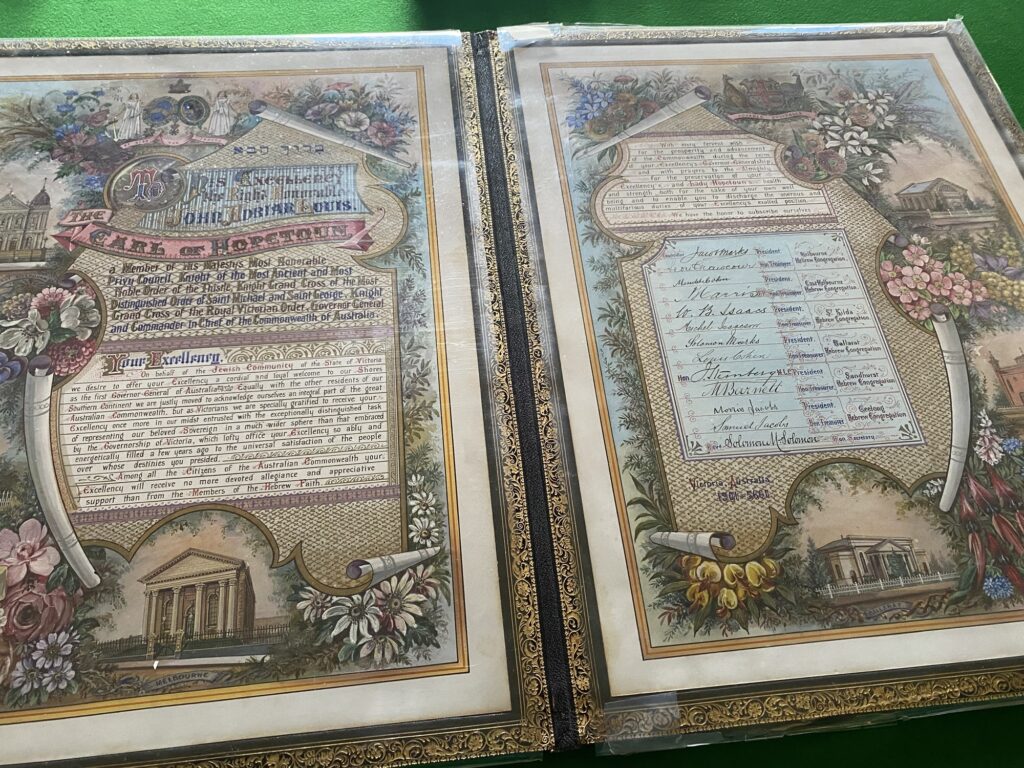 ברוך הבא
To His Excellency
The Right Honorable
JOHN ADRIAN LOUIS,
THE
EARL OF HOPETOUN
a Member of His Majesty's Most Honorable
Privy Council, Knight of the Most Ancient and Most
Noble Order of the Thistle, Knight Grand Cross of the Most
Distinguished Order of Saint Michael and Saint George, Knight
Grand Cross of the Royal Victorian Order, Governor General
and Commander in Chief of the Commonwealth of Australia.
Your Excellency,
On behalf of the Jewish Community of the State of Victoria
we desire to offer your Excellency a cordial and loyal welcome to our Shores
as the first Governor General of Australia. Equally with the other residents of our
Southern Continent we are justly moved to acknowledge ourselves an integral part of the great
Australian Commonwealth, but as Victorians we are specially gratified to receive your
Excellency once more in our midst entrusted with the exceptionally distinguished task
of representing our beloved Sovereign in a much wider sphere than that embraced
by the Governorship of Victoria, which lofty office your Excellency so ably and
energetically filled a few years ago to the universal satisfaction of the people
over whose destinies you presided.
Among all the Citizens of the Australian Commonwealth your
Excellency will receive no more devoted allegiance and appreciative
support than from the Members of the Hebrew Faith.
MELBOURNE
With very fervent wish
for the prosperity and advancement
of the Commonwealth during the term
of your Excellency's Governor Generalship
and with prayers to the Almighty
for the preservation of your
Excellency and Lady Hopetoun in health
and strength both for the sake of your own well
being and to enable you to discharge the onerous and
multifarious duties of your Excellency's exalted position.
We have the honor to subscribe ourselves
Jacob Marks President
Hon. Treasurer
Melbourne
Hebrew Congregation
President
Hon. Treasurer
East Melbourne
Hebrew Congregation
W. B. Isaacs President
Michel Isaacson Hon. Treasurer
St Kilda
Hebrew Congregation
Solomon Marks President
Lewis Cohen Hon. Treasurer
Ballarat
Hebrew Congregation
Hon. J. Sternberg M.L.C. President
M. Burnett Hon. Treasurer
Sandhurst
Hebrew Congregation
Morris Jacobs President
Samuel Jacobs Hon. Treasurer
Geelong
Hebrew Congregation
Solomon Solomon Hon. Secretary
Victoria, Australia.
1901-5661